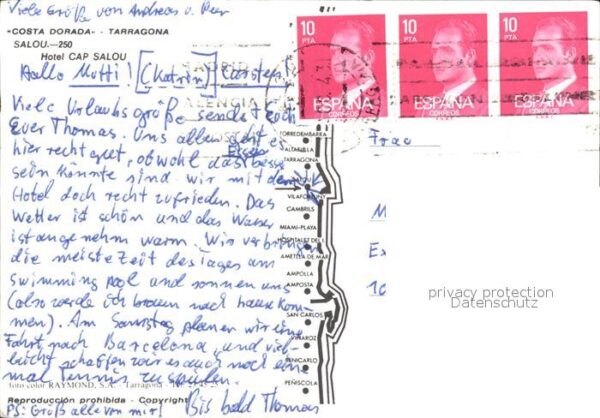 Viele Grüße von Andreas u. Peer
«COSTA DORADA» - TARRAGONA
SALOU.—250
Hotel CAP SALOU
Hallo Mutti! (Katrin) Carsten!
Viele Urlaubsgrüße sendet Euch
Euer Thomas. Uns allen geht es
hier recht gut, obwohl das Essen besser
sein könnte sind wir mit dem
Hotel doch recht zufrieden. Das
Wetter ist schön und das Wasser
ist angenehm warm. Wir verbringen
die meiste Zeit des Tages am
Swimming pool und sonnen uns
(also werde ich braun nach hause kom-
men). Am Samstag planen wir eine
Fahrt nach Barcelona, und viel-
leicht schaffen wir es auch noch ein
mal Tennis zu spielen.
foto color RAYMOND, S.A. Tarragona
Reproducción prohibida - Copyright
PS: Grüß alle von mir! Bis bald Thomas
10 PTA
ESPAÑA
CORREOS
10 PTA
ESPAÑA
CORREOS
10 PTA
ESPAÑA
CORREOS
TORREDEMBARRA
ALTAFULLA
TARRAGONA
VILAFORTUNY
CAMBRILS
MIAMI-PLAYA
HOSPITALET DEL I.
AMETLLA DE MAR
AMPOLLA
AMPOSTA
SAN CARLOS
VINAROZ
BENICARLO
PEÑISCOLA
Frau
M
Ex
10
privacy protection
Datenschutz